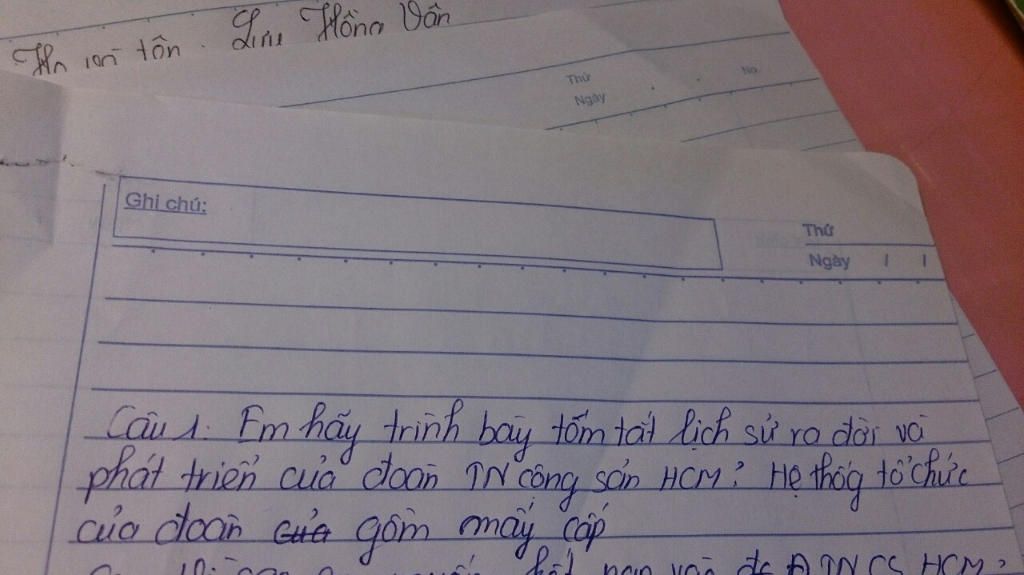 Họ và tên . Lưu Hồng Vân
Thứ No.
Ngày
Ghi chú:
Thứ
Ngày / /
Câu 1. Em hãy trình bày tóm tắt lịch sử ra đời và
phát triển của đoàn TN cộng sản HCM? Hệ thốg tổ chức
của đoàn của gồm mấy cấp
HCM?